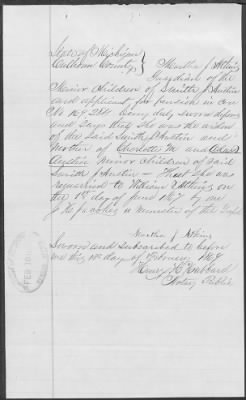 State of Michigan
Calhoun County
Martha J Atkins
Guardian of the
Minor Children of Smith J Austin
and applicant for pension in on
No 169.284 being duly sworn deposes
and says that she was the widow
of the said Smith J Austin and
Mother of Charlotte M and
Austin Minor Children of said
Smith J Austin - That She was
remarried to William Atkins on
the 1st day of June 1867 by one
a Minister of the
Martha J Atkins
Sworn and subscribed to before
me this day of February 1869
Henry H Hubbard
Notary Public
FEB